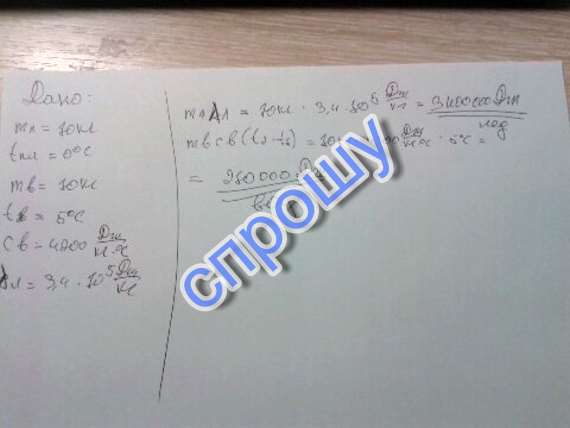 Дано:
mл = 10кг
tпл = 0°C
mв = 10кг
tв = 5°C
Cв = 4200 Дж/кг·°C
λл = 3,4 · 10⁵ Дж/кг
mлλл = 10кг · 3,4 · 10⁵ Дж/кг = 3400000 Дж
лед
mвcв(t2-t1) = 10кг · Дж/кг°C · 5°C =
= 210000 Дж
спрошу